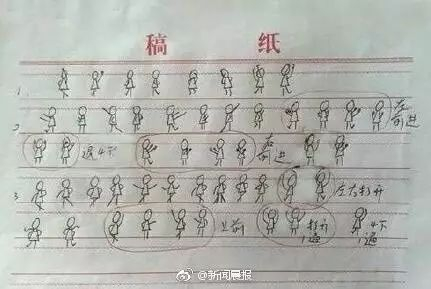 稿 纸
1.
2. 左前进
退4下 右前进
3. 左右打开
上前 打开1遍 4下1遍
@新闻晨报